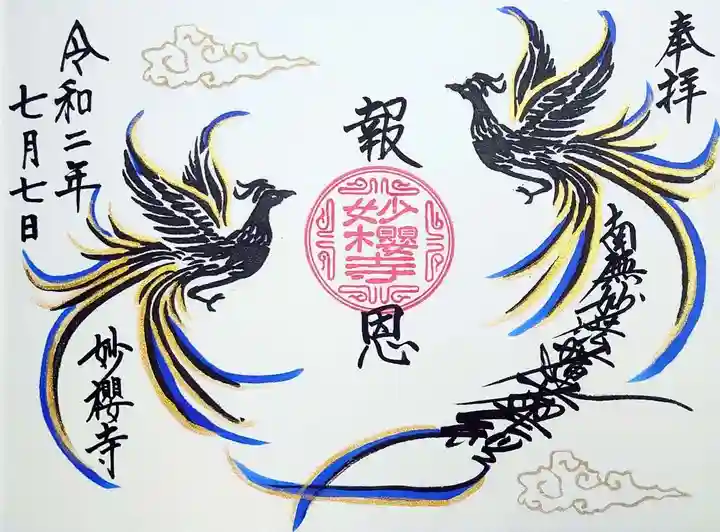 奉拝
南無妙法蓮華経
報恩
妙櫻寺
令和二年
七月七日
妙櫻寺